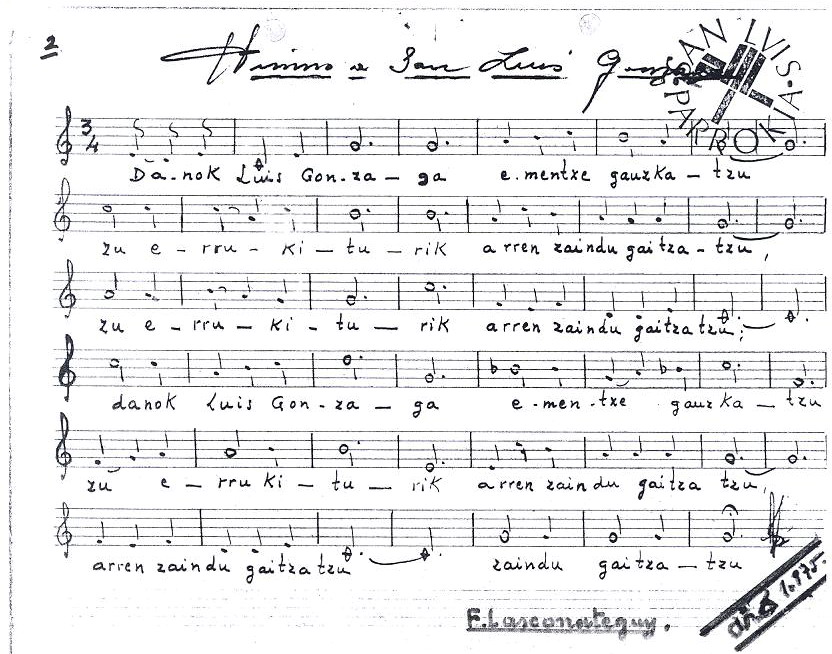 2
Himno a San Luis Gonzaga
SAN LUIS-A PARROKIA
3
4
Da-nok Luis Gon-za-ga e.mentxe gauzka-tzu
zu e-rru-ki-tu-rik arren zaindu gaitza-tzu,
zu e-rru-ki-tu-rik arren zaindu gaitzatzu;
danok Luis Gon-za-ga e-men-txe gauzka-tzu
zu e-rru ki-tu-rik arren zaindu gaitza tzu,
arren zaindu gaitza tzu zaindu gaitza-tzu
F. Lasconateguy.
año 1.975.